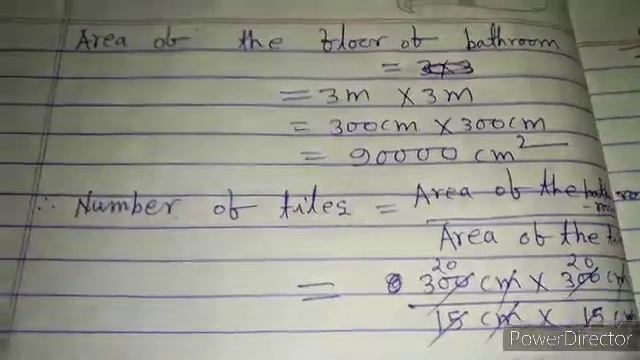 Area of the floor of bathroom
= 3x3
= 3m x 3m
= 300cm x 300cm
= 90000 cm²
∴ Number of tiles = Area of the bathroom
Area of the
= 300 cm x 300 cm
20 20
15 cm x 15 cm
PowerDirector